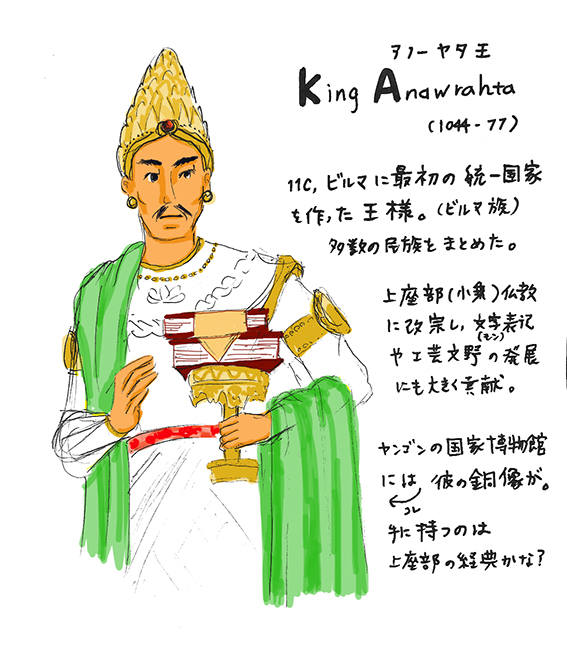 アノーヤタ王
King Anawrahta
(1044-77)
11C, ビルマに最初の統一国家
を作った王様。(ビルマ族)
多数の民族をまとめた。
上座部(小乗)仏教
に改宗し、文字表記
(モン)
や工芸文野の発展
にも大きく貢献。
ヤンゴンの国家博物館
には 彼の銅像が。
コレ
手に持つのは
上座部の経典かな?